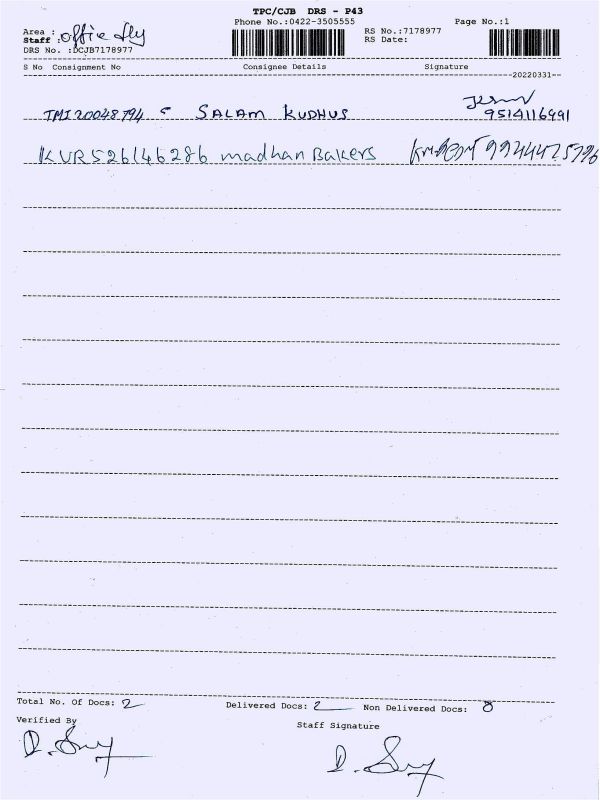 TPC/CJB DRS - P43
Phone No.:0422-3505555
Page No.:1
Area :
Staff : office
DRS No. :DCJB7178977
RS No.:7178977
RS Date:
S No Consignment No Consignee Details Signature
20220331
TMI20048794 5 SALAM KUDHUS 9514116991
KVR526146286 madhan Bakers
Total No. Of Docs: 2 Delivered Docs: 2 Non Delivered Docs: 0
Verified By Staff Signature